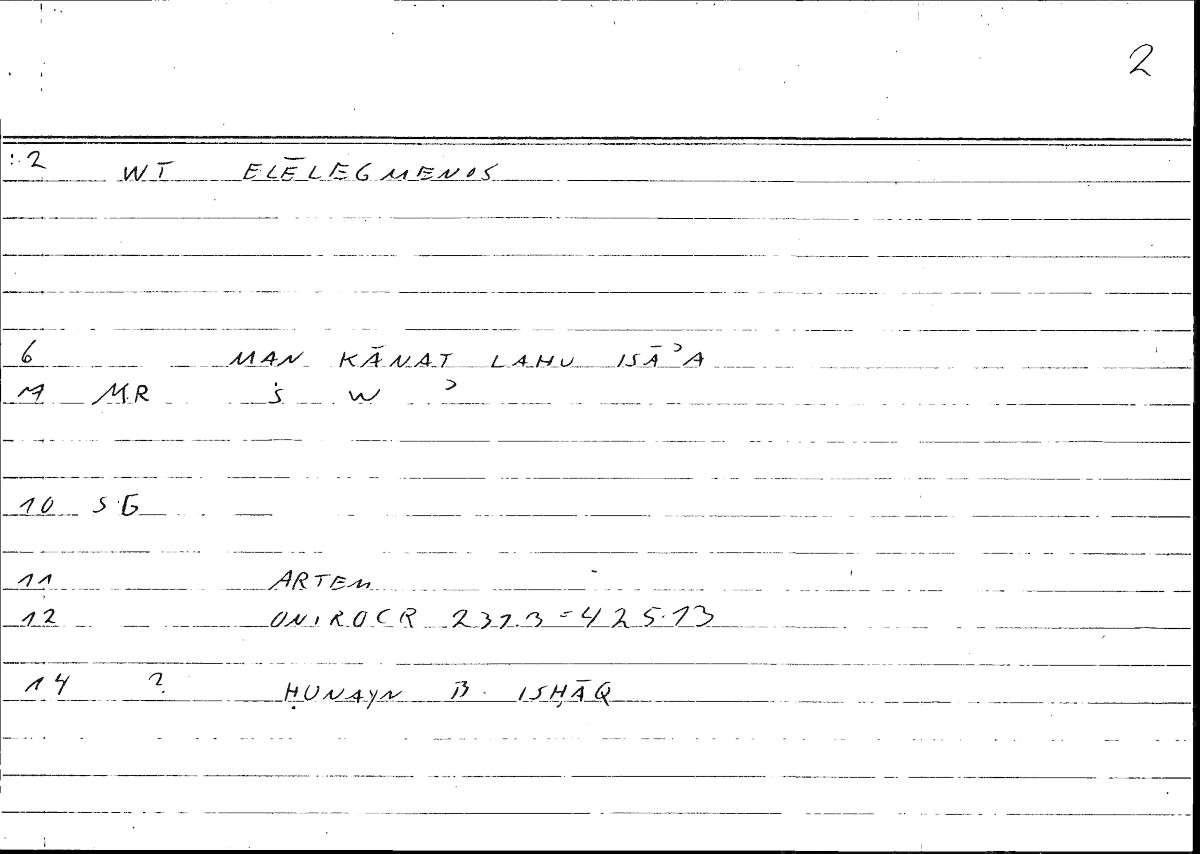 2
:2 WT ELĒLEGMENOS
6 MAN KĀNAT LAHU ISĀʾA
7 MR ṡ W ʾ
10 SG
11 ARTEM
12 ONIROCR 231.3 = 425.13
14 ? ḤUNAYN B. ISḤĀQ